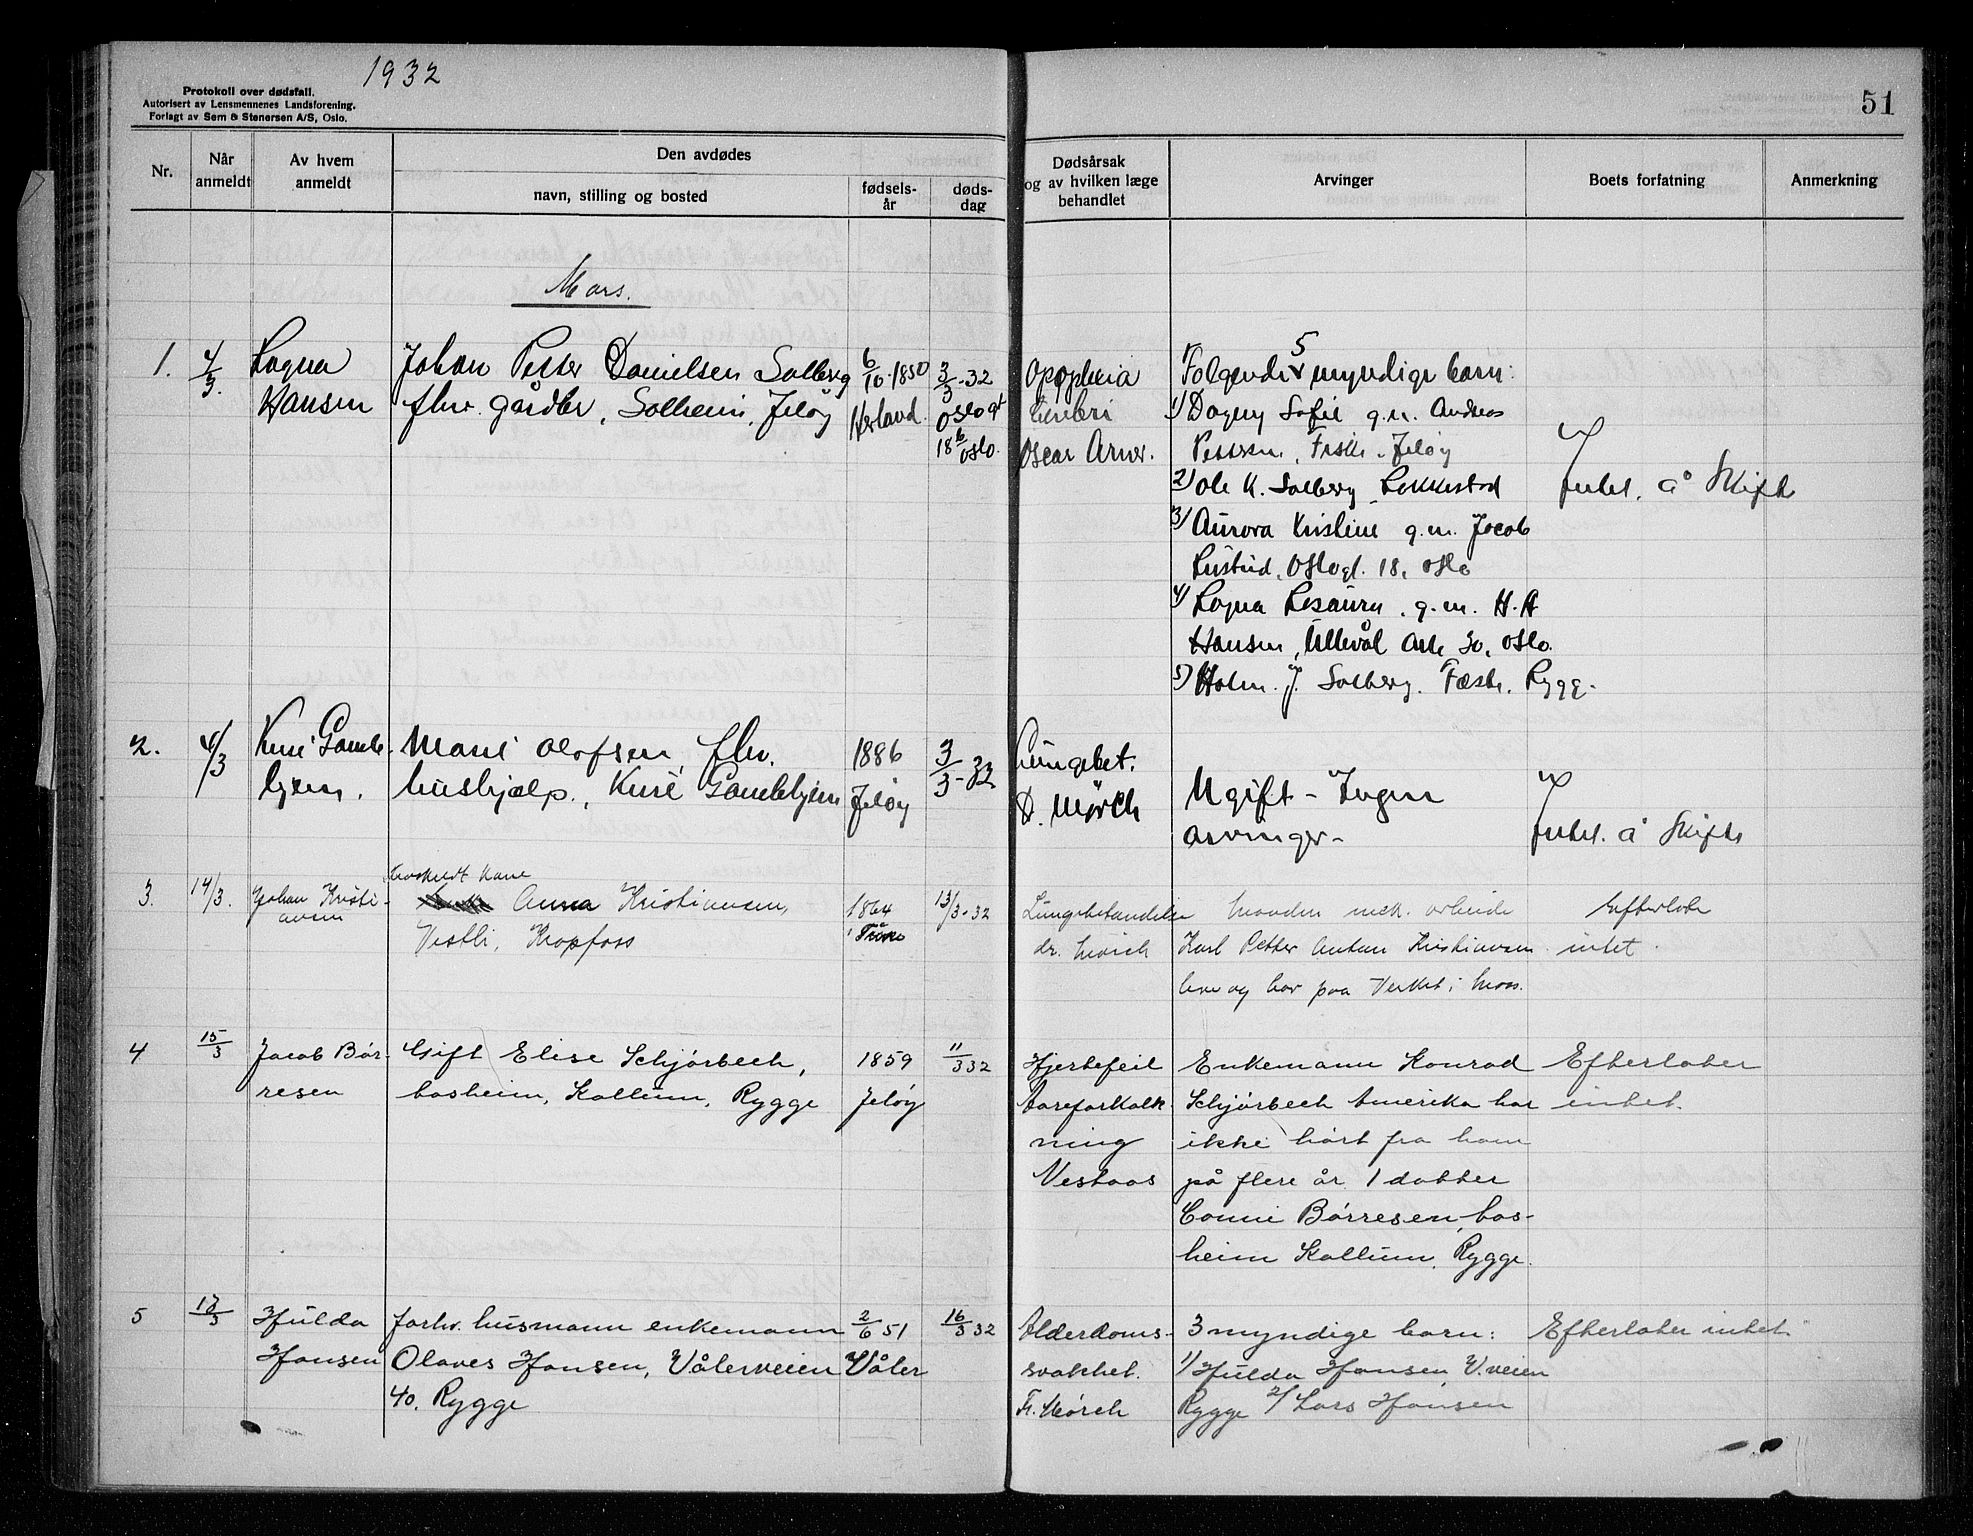 1932
Protokoll over dødsfall.
Autorisert av Lensmennenes Landsforening.
Forlagt av Sem & Stenersen A/S, Oslo.
51
Nr.
Når anmeldt
Av hvem anmeldt
Den avdødes
navn, stilling og bosted
fødsels-år
døds-dag
Dødsårsak og av hvilken læge behandlet
Arvinger
Boets forfatning
Anmerkning
Mars.
1.
4/3.
Lagna
Hansen
Johan Petter Danielsen Solberg
fhv. gårdbr, Solheim, Jeløy
6/10.1850
3/3-32
Oslogt
18 Oslo.
Oscar Arner.
Følgende 5 myndige barn:
1) Dagny Sofie g.m. Andreas
Petersen, Jeløy
2) Ole K. Solberg,
3) Aurora Kristine g.m. Jacob
Oslogt. 18, Oslo
4) Lagna g.m. H.A
Hansen, Ullevål Oslo.
5) J. Solberg. Rygge.
Intet å skifte
2.
4/3
Marie Olofsen, fhv.
hushjælp.,
1886
Jeløy
3/3-32
Lungebet.
D. Mørch
Ugift - Ingen
arvinger-
Intet å skifte
3.
14/3.
Johan Kristi-
ansen
fraskildt kone
Anna Kristiansen,
Vestli, Kropfoss
1864
13/3-32
Lungebetændelse
dr. Mørch
Manden mek. arbeide
Karl Petter Anton Kristiansen
lever og bor paa Verket i Moss.
Efterlate
intet.
4
15/3
Jacob Bør-
resen
Gift Elise Schjørbech,
bosheim, Kallum, Rygge
1859
Jeløy
11/3 32
Hjertefeil
Aareforkalk-
ning
Vestaas
Enkemann Konrad
Schjørbech Amerika har
ikke hørt fra ham
på flere år 1 datter
Conni Børresen, bos-
heim Kallum, Rygge.
Efterlater
intet.
5
17/3
Hulda
Hansen
forhv. husmann enkemann
Olaves Hansen, Vålerveien
40, Rygge
2/6 51
Våler
16/3 32
Alderdoms-
svakhet.
Fr. Mørch
3 myndige barn:
1/ Hulda Hansen, V.veien
Rygge 2/ Lars Hansen
Efterlater intet.